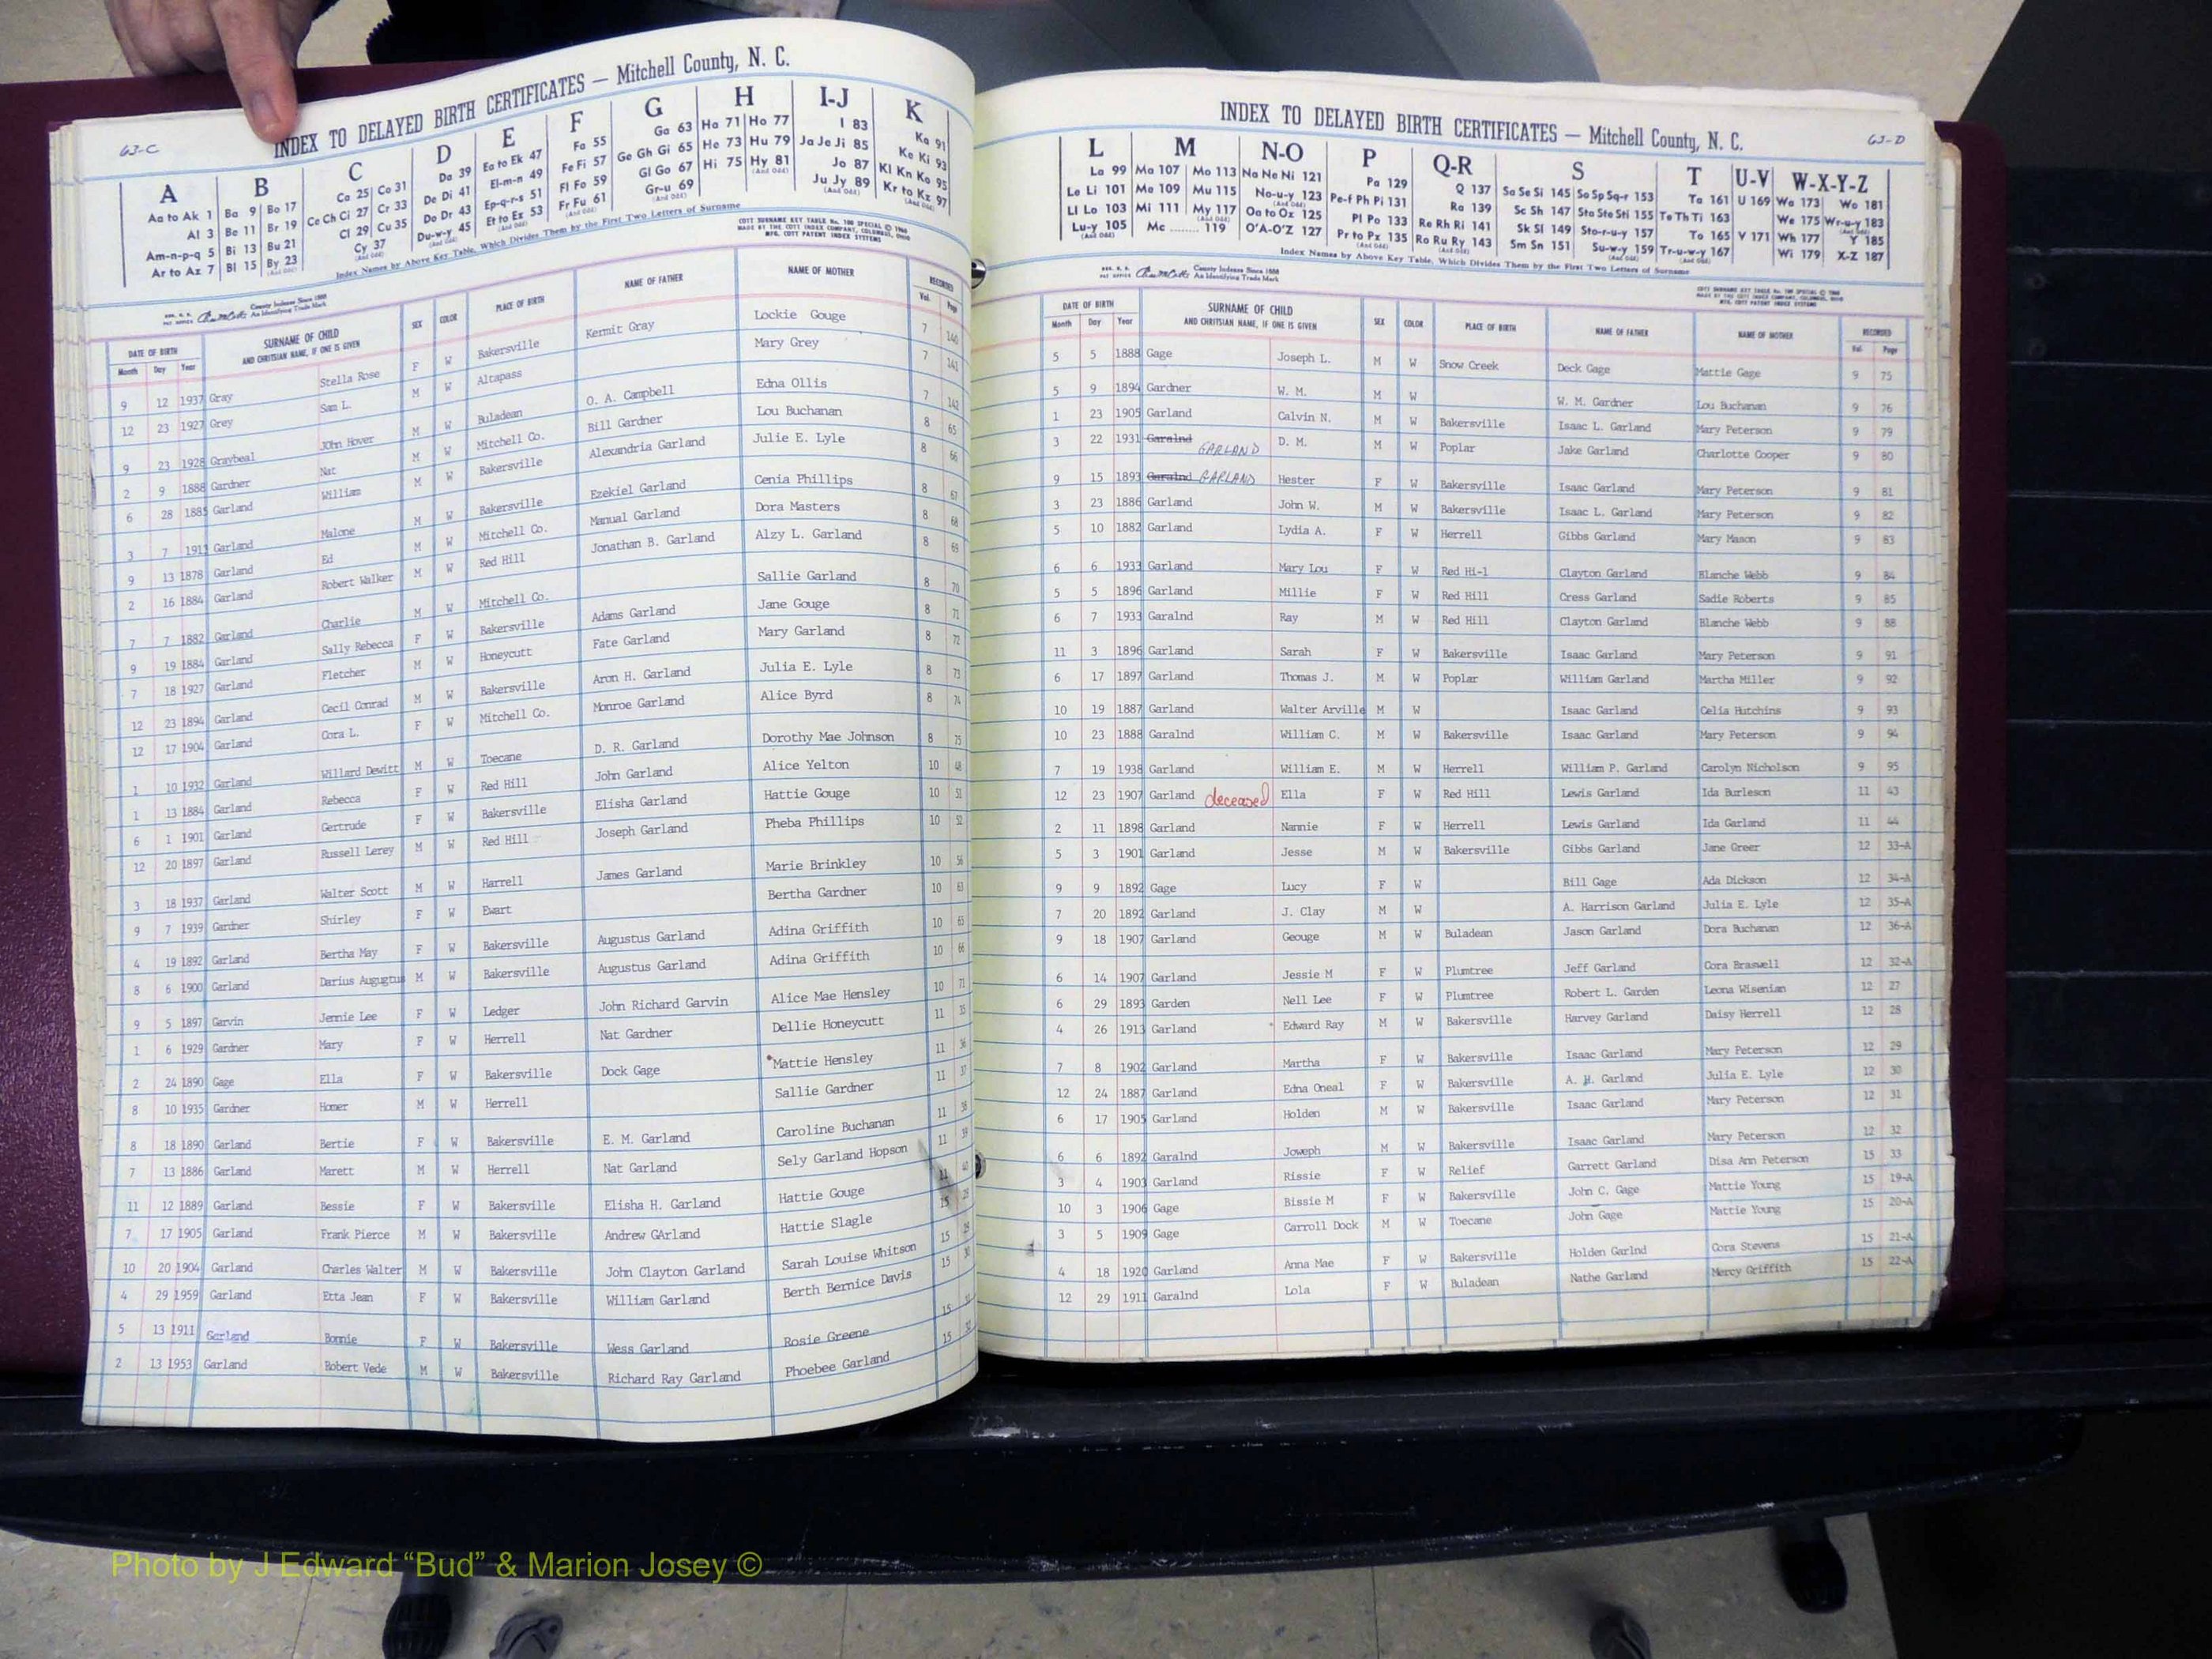 63-C
INDEX TO DELAYED BIRTH CERTIFICATES — Mitchell County, N. C.
A B C D E F G H I-J K
Aa to Ak 1 Ba 9 Bo 17 Ca 25 Co 31 Da 39 Ea to Ek 47 Fa 55 Ga 63 Ha 71 Ho 77 I 83 Ka 91
Al 3 Be 11 Br 19 Ce Ch Ci 27 Cr 33 De Di 41 El-m-n 49 Fe Fi 57 Ge Gh Gi 65 He 73 Hu 79 Ja Je Ji 85 Ke Ki 93
Am-n-p-q 5 Bi 13 Bu 21 Cl 29 Cu 35 Do Dr 43 Ep-q-r-s 51 Fl Fo 59 Gl Go 67 Hi 75 Hy 81 Jo 87 Kl Kn Ko 95
Ar to Az 7 Bl 15 By 23 Cy 37 Du-w-y 45 Et to Ez 53 Fr Fu 61 Gr-u 69 Ju Jy 89 Kr to Kz 97
Index Names by Above Key Table, Which Divides Them by the First Two Letters of Surname
County Indexes Since 1888
An Identifying Trade Mark
DATE OF BIRTH SURNAME OF CHILD SEX COLOR PLACE OF BIRTH NAME OF FATHER NAME OF MOTHER RECORDED
Month Day Year AND CHRITSIAN NAME, IF ONE IS GIVEN Vol. Page
9 12 1937 Gray Stella Rose F W Bakersville Kermit Gray Lockie Gouge 7 140
12 23 1927 Grey Sam L. M W Altapass Mary Grey 7 141
9 23 1928 Graybeal John Hover M W Buladean O. A. Campbell Edna Ollis 7 142
2 9 1888 Gardner Nat M W Mitchell Co. Bill Gardner Lou Buchanan 8 65
6 28 1885 Garland William M W Bakersville Alexandria Garland Julie E. Lyle 8 66
3 7 1911 Garland Malone M W Bakersville Ezekiel Garland Cenia Phillips 8 67
9 13 1878 Garland Ed M W Mitchell Co. Manual Garland Dora Masters 8 68
2 16 1884 Garland Robert Walker M W Red Hill Jonathan B. Garland Alzy L. Garland 8 69
7 7 1882 Garland Charlie M W Mitchell Co. Sallie Garland 8 70
9 19 1884 Garland Sally Rebecca F W Bakersville Adams Garland Jane Gouge 8 71
7 18 1927 Garland Fletcher M W Honeycutt Fate Garland Mary Garland 8 72
12 23 1894 Garland Cecil Conrad M W Bakersville Aron H. Garland Julia E. Lyle 8 73
12 17 1904 Garland Cora L. F W Mitchell Co. Monroe Garland Alice Byrd 8 74
1 10 1932 Garland Willard Dewitt M W Toecane D. R. Garland Dorothy Mae Johnson 8 75
1 13 1884 Garland Rebecca F W Red Hill John Garland Alice Yelton 10 48
6 1 1901 Garland Gertrude F W Bakersville Elisha Garland Hattie Gouge 10 51
12 20 1897 Garland Russell Lerey M W Red Hill Joseph Garland Pheba Phillips 10 52
3 18 1937 Garland Walter Scott M W Harrell James Garland Marie Brinkley 10 56
9 7 1939 Gardner Shirley F W Ewart Bertha Gardner 10 63
4 19 1892 Garland Bertha May F W Bakersville Augustus Garland Adina Griffith 10 65
8 6 1900 Garland Darius Augugtus M W Bakersville Augustus Garland Adina Griffith 10 66
9 5 1897 Garvin Jennie Lee F W Ledger John Richard Garvin Alice Mae Hensley 10 71
1 6 1929 Gardner Mary F W Herrell Nat Gardner Dellie Honeycutt 11 35
2 24 1890 Gage Ella F W Bakersville Dock Gage Mattie Hensley 11 36
8 10 1935 Gardner Homer M W Herrell Sallie Gardner 11 37
8 18 1890 Garland Bertie F W Bakersville E. M. Garland Caroline Buchanan 11 38
7 13 1886 Garland Marett M W Herrell Nat Garland Sely Garland Hopson 11 39
11 12 1889 Garland Bessie F W Bakersville Elisha H. Garland Hattie Gouge 11 40
7 17 1905 Garland Frank Pierce M W Bakersville Andrew GArland Hattie Slagle 15
10 20 1904 Garland Charles Walter M W Bakersville John Clayton Garland Sarah Louise Whitson 15
4 29 1959 Garland Etta Jean F W Bakersville William Garland Berth Bernice Davis 15
5 13 1911 Garland Bonnie F W Bakersville Wess Garland Rosie Greene 15
2 13 1953 Garland Robert Vede M W Bakersville Richard Ray Garland Phoebee Garland 15
63-D
INDEX TO DELAYED BIRTH CERTIFICATES — Mitchell County, N. C.
L M N-O P Q-R S T U-V W-X-Y-Z
La 99 Ma 107 Mo 113 Na Ne Ni 121 Pa 129 Q 137 Sa Se Si 145 So Sp Sq-r 153 Ta 161 U 169 Wa 173 Wo 181
Le Li 101 Me 109 Mu 115 No-u-y 123 Pe-f Ph Pi 131 Ra 139 Sc Sh 147 Sta Ste Sti 155 Te Th Ti 163 We 175 Wr-u-y 183
Ll Lo 103 Mi 111 My 117 Oa to Oz 125 Pl Po 133 Re Rh Ri 141 Sk Sl 149 Sto-r-u-y 157 To 165 V 171 Wh 177 Y 185
Lu-y 105 Mc ........ 119 O'A-O'Z 127 Pr to Pz 135 Ro Ru Ry 143 Sm Sn 151 Su-w-y 159 Tr-u-w-y 167 Wi 179 X-Z 187
Index Names by Above Key Table, Which Divides Them by the First Two Letters of Surname
County Indexes Since 1888
An Identifying Trade Mark
DATE OF BIRTH SURNAME OF CHILD SEX COLOR PLACE OF BIRTH NAME OF FATHER NAME OF MOTHER RECORDED
Month Day Year AND CHRITSIAN NAME, IF ONE IS GIVEN Vol. Page
5 5 1888 Gage Joseph L. M W Snow Creek Deck Gage Mattie Gage 9 75
5 9 1894 Gardner W. M. M W W. M. Gardner Lou Buchanan 9 76
1 23 1905 Garland Calvin N. M W Bakersville Isaac L. Garland Mary Peterson 9 79
3 22 1931 Garalnd GARLAND D. M. M W Poplar Jake Garland Charlotte Cooper 9 80
9 15 1893 Garalnd GARLAND Hester F W Bakersville Isaac Garland Mary Peterson 9 81
3 23 1886 Garland John W. M W Bakersville Isaac L. Garland Mary Peterson 9 82
5 10 1882 Garland Lydia A. F W Herrell Gibbs Garland Mary Mason 9 83
6 6 1933 Garland Mary Lou F W Red Hi-l Clayton Garland Blanche Webb 9 84
5 5 1896 Garland Millie F W Red Hill Cress Garland Sadie Roberts 9 85
6 7 1933 Garalnd Ray M W Red Hill Clayton Garland Blanche Webb 9 88
11 3 1896 Garland Sarah F W Bakersville Isaac Garland Mary Peterson 9 91
6 17 1897 Garland Thomas J. M W Poplar William Garland Martha Miller 9 92
10 19 1887 Garland Walter Arville M W Isaac Garland Celia Hutchins 9 93
10 23 1888 Garalnd William C. M W Bakersville Isaac Garland Mary Peterson 9 94
7 19 1938 Garland William E. M W Herrell William P. Garland Carolyn Nicholson 9 95
12 23 1907 Garland deceased Ella F W Red Hill Lewis Garland Ida Burleson 11 43
2 11 1898 Garland Nannie F W Herrell Lewis Garland Ida Garland 11 44
5 3 1901 Garland Jesse M W Bakersville Gibbs Garland Jane Greer 12 33-A
9 9 1892 Gage Lucy F W Bill Gage Ada Dickson 12 34-A
7 20 1892 Garland J. Clay M W A. Harrison Garland Julia E. Lyle 12 35-A
9 18 1907 Garland Geouge M W Buladean Jason Garland Dora Buchanan 12 36-A
6 14 1907 Garland Jessie M F W Plumtree Jeff Garland Cora Braswell 12 32-A
6 29 1893 Garden Nell Lee F W Plumtree Robert L. Garden Leona Wisenian 12 27
4 26 1913 Garland Edward Ray M W Bakersville Harvey Garland Daisy Herrell 12 28
7 8 1902 Garland Martha F W Bakersville Isaac Garland Mary Peterson 12 29
12 24 1887 Garland Edna Oneal F W Bakersville A. H. Garland Julia E. Lyle 12 30
6 17 1905 Garland Holden M W Bakersville Isaac Garland Mary Peterson 12 31
6 6 1892 Garalnd Joweph M W Bakersville Isaac Garland Mary Peterson 12 32
3 4 1903 Garland Rissie F W Relief Garrett Garland Disa Ann Peterson 15 33
10 3 1906 Gage Bissie M F W Bakersville John C. Gage Mattie Young 15 19-A
3 5 1909 Gage Carroll Dock M W Toecane John Gage Mattie Young 15 20-A
4 18 1920 Garland Anna Mae F W Bakersville Holden Garlnd Cora Stevens 15 21-A
12 29 1911 Garalnd Lola F W Buladean Nathe Garland Mercy Griffith 15 22-A
Photo by J Edward “Bud” & Marion Josey ©